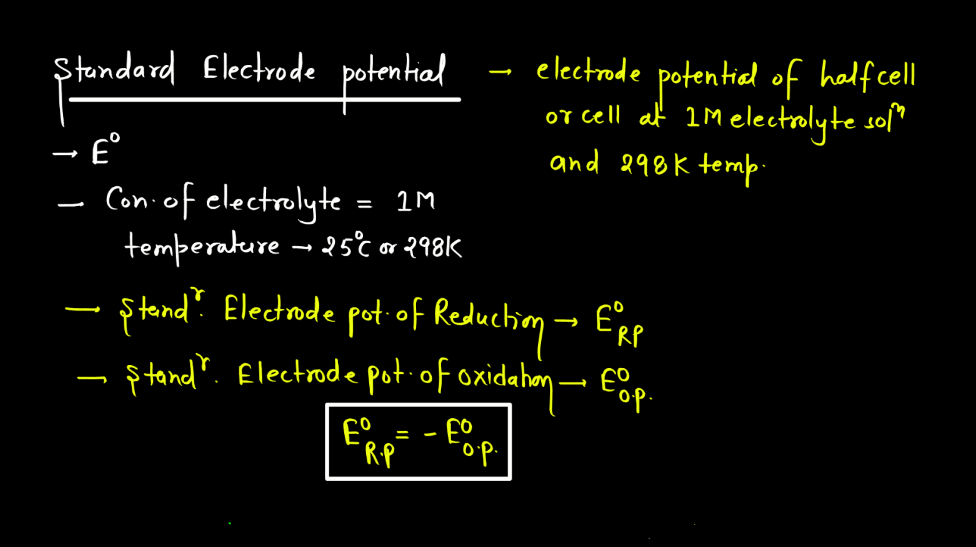 Standard Electrode potential
→ electrode potential of half cell
or cell at 1M electrolyte solⁿ
and 298K temp.
→ E⁰
— Con. of electrolyte = 1M
temperature → 25⁰C or 298K
— Standʳ. Electrode pot. of Reduction → E⁰RP
— Standʳ. Electrode pot. of oxidation → E⁰O.P.
E⁰R.P = - E⁰O.P.